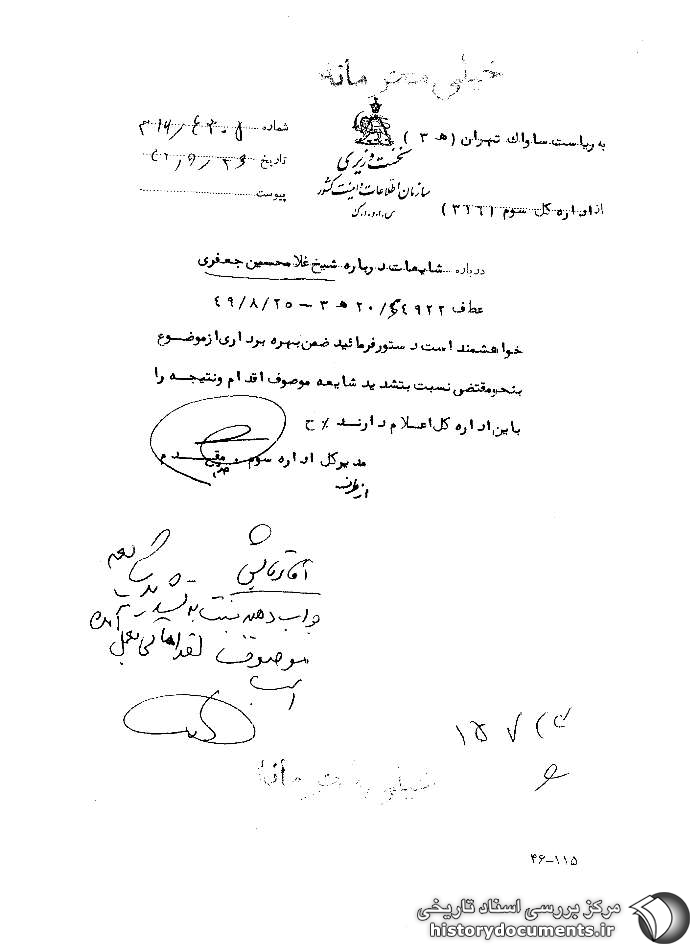 خیلی محرمانه
به ریاست ساواک تهران (هـ ۳)
از اداره کل سوم (۳۶۶)
نخست وزیری
سازمان اطلاعات و امنیت کشور
س.ا.و.ا.ک
شماره
تاریخ
پیوست
درباره شایعات درباره شیخ غلامحسین جعفری
عطف ۲۰/۶۴۹۲۲ هـ ۳ – ۴۹/۸/۲۵
خواهشمند است دستور فرمائید ضمن بهره برداری از موضوع
بنحو مقتضی نسبت بتشدید شایعه موصوف اقدام و نتیجه را
باین اداره کل اعلام دارند ٪ ح
مدیرکل اداره سوم . مقدم
از طرف
جواب دهید نسبت به تشدید شایعه
موصوف اقداماتی بعمل آمده
است
خیلی محرمانه
۴۶-۱۱۵
مرکز بررسی اسناد تاریخی
historydocuments.ir